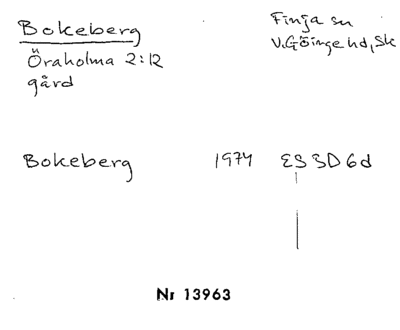 Bokeberg
Öraholma 2:12
gård
Finja sn
V. Göinge hd, Sk
Bokeberg 1974 ES 3D 6d
Nr 13963